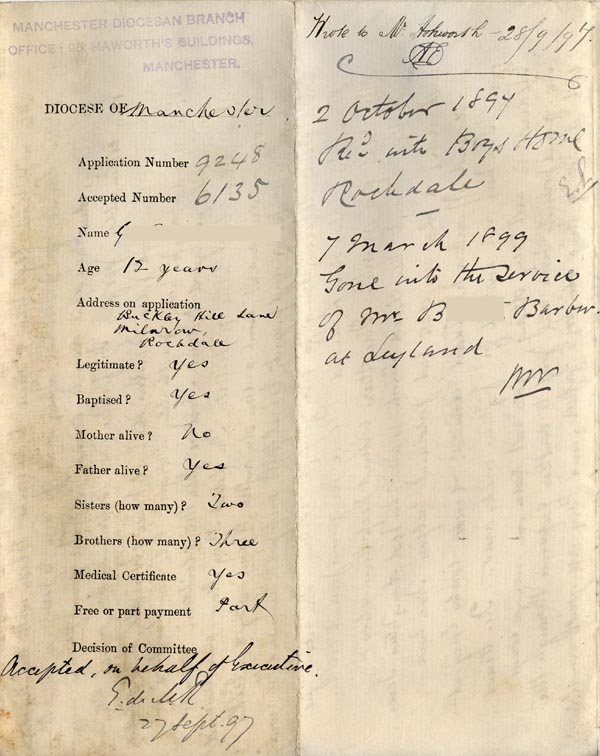 MANCHESTER DIOCESAN BRANCH
OFFICE: 98 HAWORTH'S BUILDINGS,
MANCHESTER.
DIOCESE OF Manchester
Application Number 9248
Accepted Number 6135
Name G
Age 12 years
Address on application
Buckley Hill Lane
Milnrow,
Rochdale
Legitimate? Yes
Baptised? Yes
Mother alive? No
Father alive? Yes
Sisters (how many)? Two
Brothers (how many)? Three
Medical Certificate Yes
Free or part payment Part
Decision of Committee
Accepted, on behalf of Executive.
E. de M. R
27 Sept. 97
Wrote to Mr Ashworth - 28/9/97.
2 October 1897
Recd into Boys Home
Rochdale
7 March 1899
Gone into the service
of Mr B Barber.
at Leyland